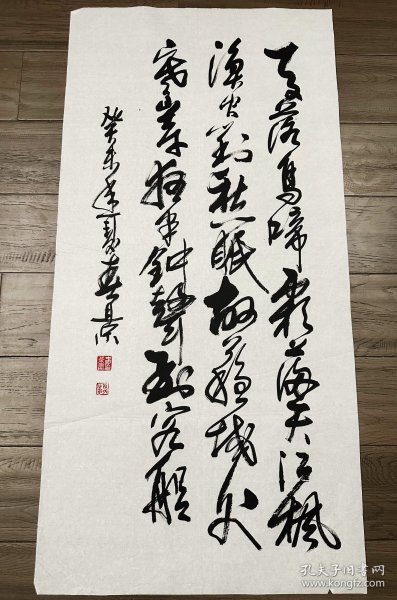 月落烏啼霜滿天江楓
漁火對愁眠姑蘇城外
寒山寺夜半鐘聲到客船
癸未年夏
孔夫子旧书网
www.kongfz.com